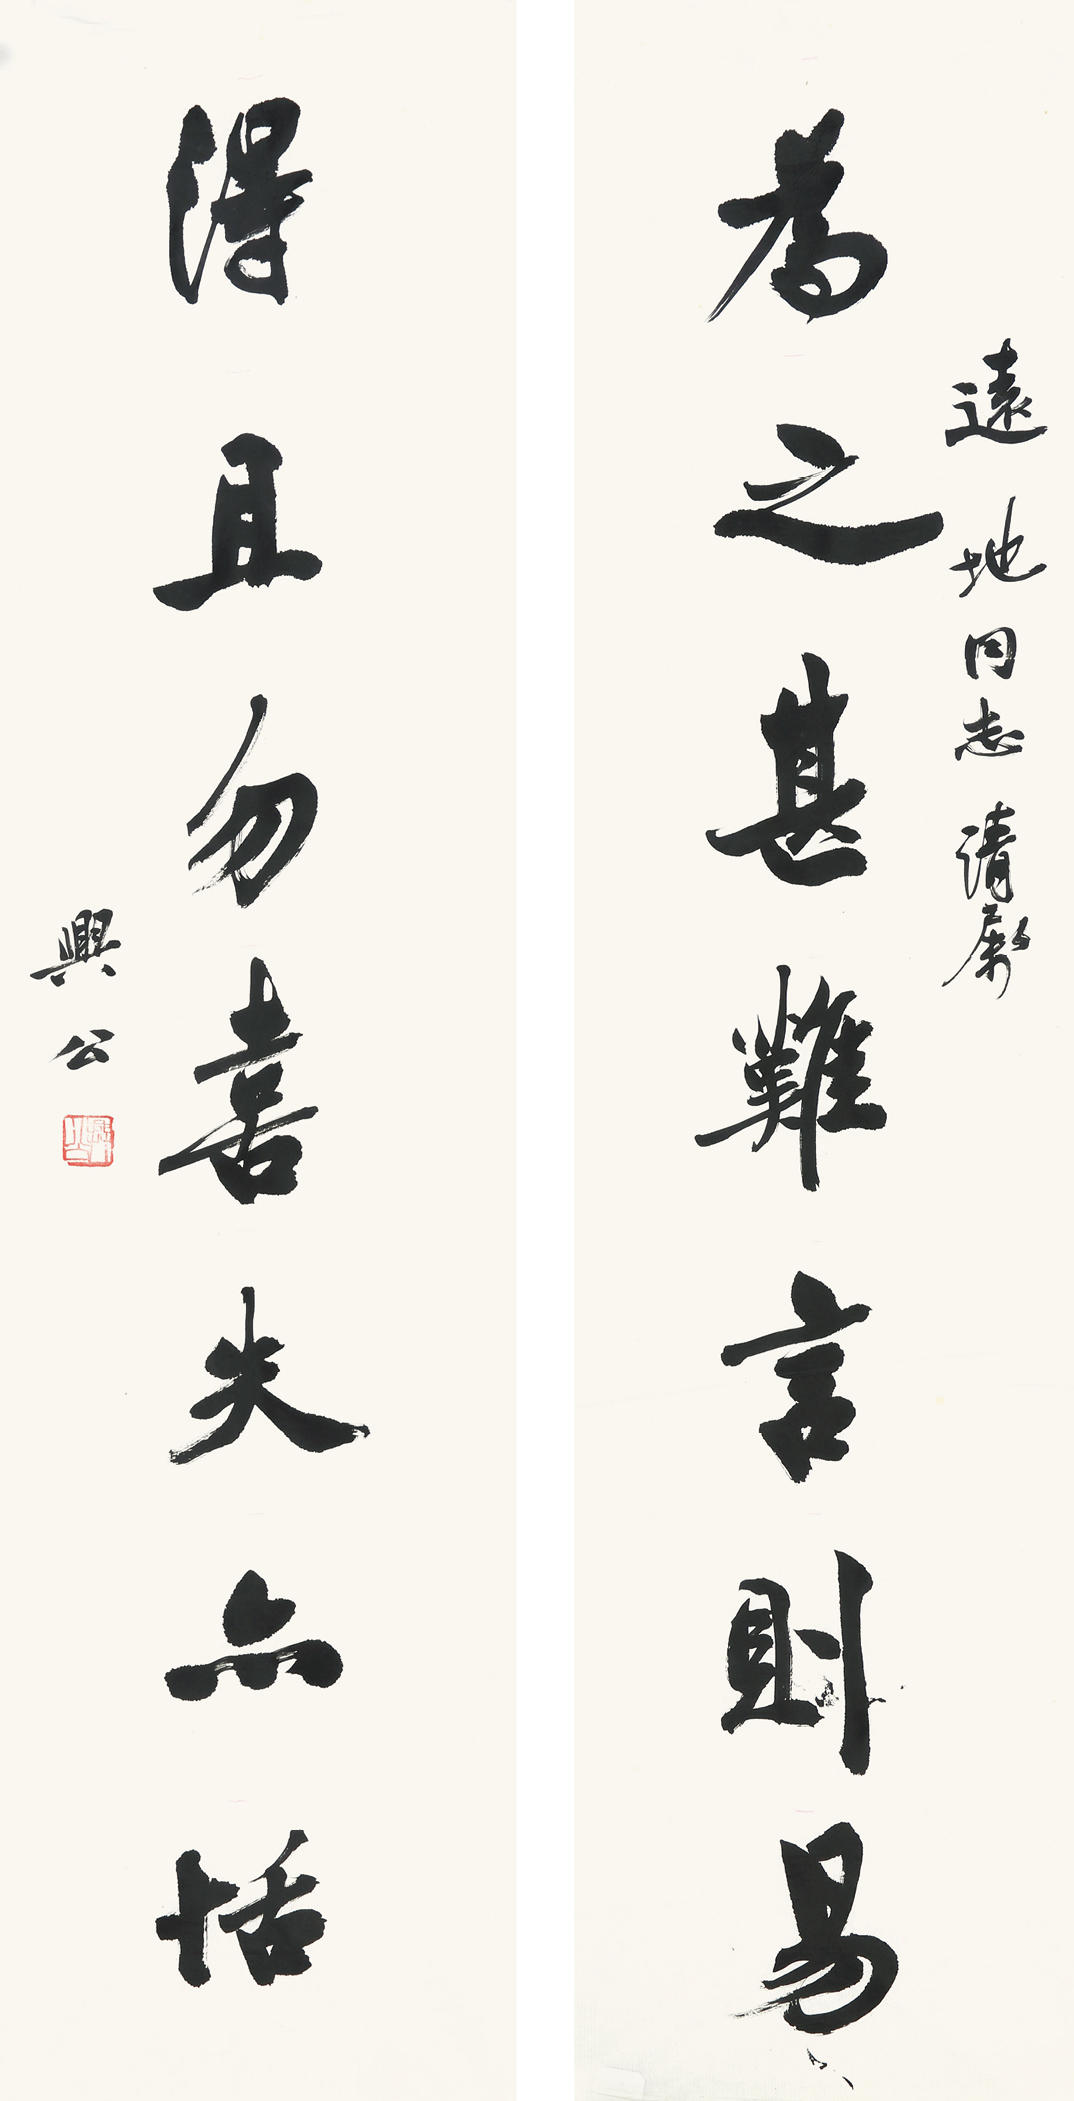 遠地同志清屬
為之甚難言則易
得且勿喜失亦恬
興公